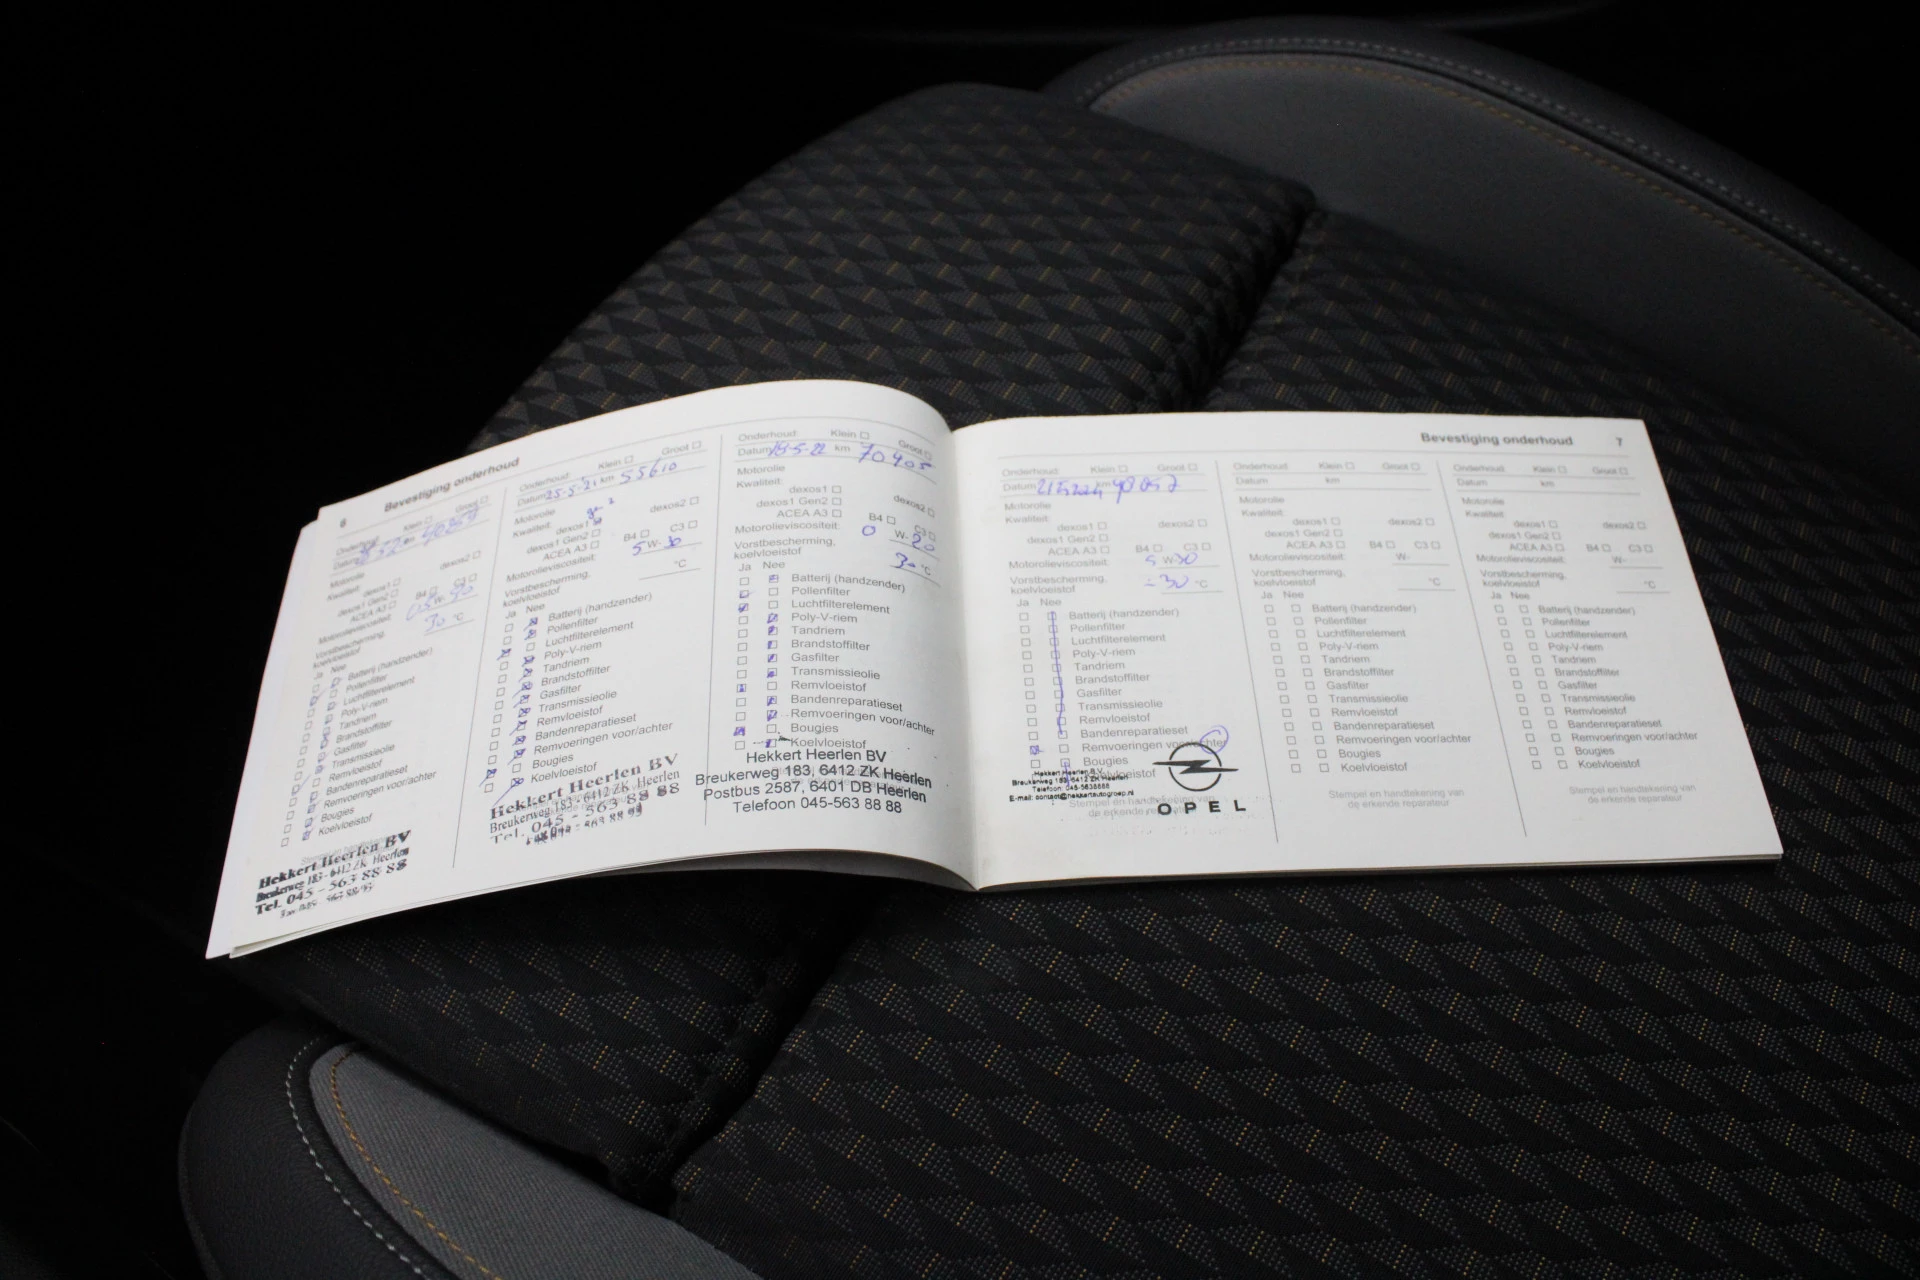 6 Bevestiging onderhoud
Onderhoud: Klein Groot
Datum km
Motorolie
Kwaliteit:
dexos1 dexos2
dexos1 Gen2
ACEA A3 B4 C3
Motorolieviscositeit: W-
Vorstbescherming,
koelvloeistof 30 °C
Ja Nee
Batterij (handzender)
Pollenfilter
Luchtfilterelement
Poly-V-riem
Tandriem
Brandstoffilter
Gasfilter
Transmissieolie
Remvloeistof
Bandenreparatieset
Remvoeringen voor/achter
Bougies
Koelvloeistof
Hekkert Heerlen BV
Breukerweg 183 - 6412 ZK Heerlen
Tel. 045 - 563 88 88
Onderhoud: Klein Groot
Datum 25-5-21 km 55610
Motorolie
Kwaliteit:
dexos1 dexos2
dexos1 Gen2
ACEA A3 B4 C3
Motorolieviscositeit: 5 W- 30
Vorstbescherming,
koelvloeistof °C
Ja Nee
Batterij (handzender)
Pollenfilter
Luchtfilterelement
Poly-V-riem
Tandriem
Brandstoffilter
Gasfilter
Transmissieolie
Remvloeistof
Bandenreparatieset
Remvoeringen voor/achter
Bougies
Koelvloeistof
Hekkert Heerlen BV
Breukerweg 183 - 6412 ZK Heerlen
Tel. 045 - 563 88 88
Onderhoud: Klein Groot
Datum 18-5-22 km 70405
Motorolie
Kwaliteit:
dexos1 dexos2
dexos1 Gen2
ACEA A3 B4 C3
Motorolieviscositeit: 0 W- 20
Vorstbescherming,
koelvloeistof 30 °C
Ja Nee
Batterij (handzender)
Pollenfilter
Luchtfilterelement
Poly-V-riem
Tandriem
Brandstoffilter
Gasfilter
Transmissieolie
Remvloeistof
Bandenreparatieset
Remvoeringen voor/achter
Bougies
Koelvloeistof
Hekkert Heerlen BV
Breukerweg 183, 6412 ZK Heerlen
Postbus 2587, 6401 DB Heerlen
Telefoon 045-563 88 88
Bevestiging onderhoud 7
Onderhoud: Klein Groot
Datum km
Motorolie
Kwaliteit:
dexos1 dexos2
dexos1 Gen2
ACEA A3 B4 C3
Motorolieviscositeit: 5 W- 30
Vorstbescherming,
koelvloeistof -30 °C
Ja Nee
Batterij (handzender)
Pollenfilter
Luchtfilterelement
Poly-V-riem
Tandriem
Brandstoffilter
Gasfilter
Transmissieolie
Remvloeistof
Bandenreparatieset
Remvoeringen voor/achter
Bougies
Koelvloeistof
Hekkert Heerlen B.V.
Breukerweg 183-6412 ZK Heerlen
Telefoon: 045-5638888
E-mail: contact@hekkertautogroep.nl
OPEL
Stempel en handtekening van
de erkende reparateur
Onderhoud: Klein Groot
Datum km
Motorolie
Kwaliteit:
dexos1 dexos2
dexos1 Gen2
ACEA A3 B4 C3
Motorolieviscositeit: W-
Vorstbescherming,
koelvloeistof °C
Ja Nee
Batterij (handzender)
Pollenfilter
Luchtfilterelement
Poly-V-riem
Tandriem
Brandstoffilter
Gasfilter
Transmissieolie
Remvloeistof
Bandenreparatieset
Remvoeringen voor/achter
Bougies
Koelvloeistof
Stempel en handtekening van
de erkende reparateur
Onderhoud: Klein Groot
Datum km
Motorolie
Kwaliteit:
dexos1 dexos2
dexos1 Gen2
ACEA A3 B4 C3
Motorolieviscositeit: W-
Vorstbescherming,
koelvloeistof °C
Ja Nee
Batterij (handzender)
Pollenfilter
Luchtfilterelement
Poly-V-riem
Tandriem
Brandstoffilter
Gasfilter
Transmissieolie
Remvloeistof
Bandenreparatieset
Remvoeringen voor/achter
Bougies
Koelvloeistof
Stempel en handtekening van
de erkende reparateur